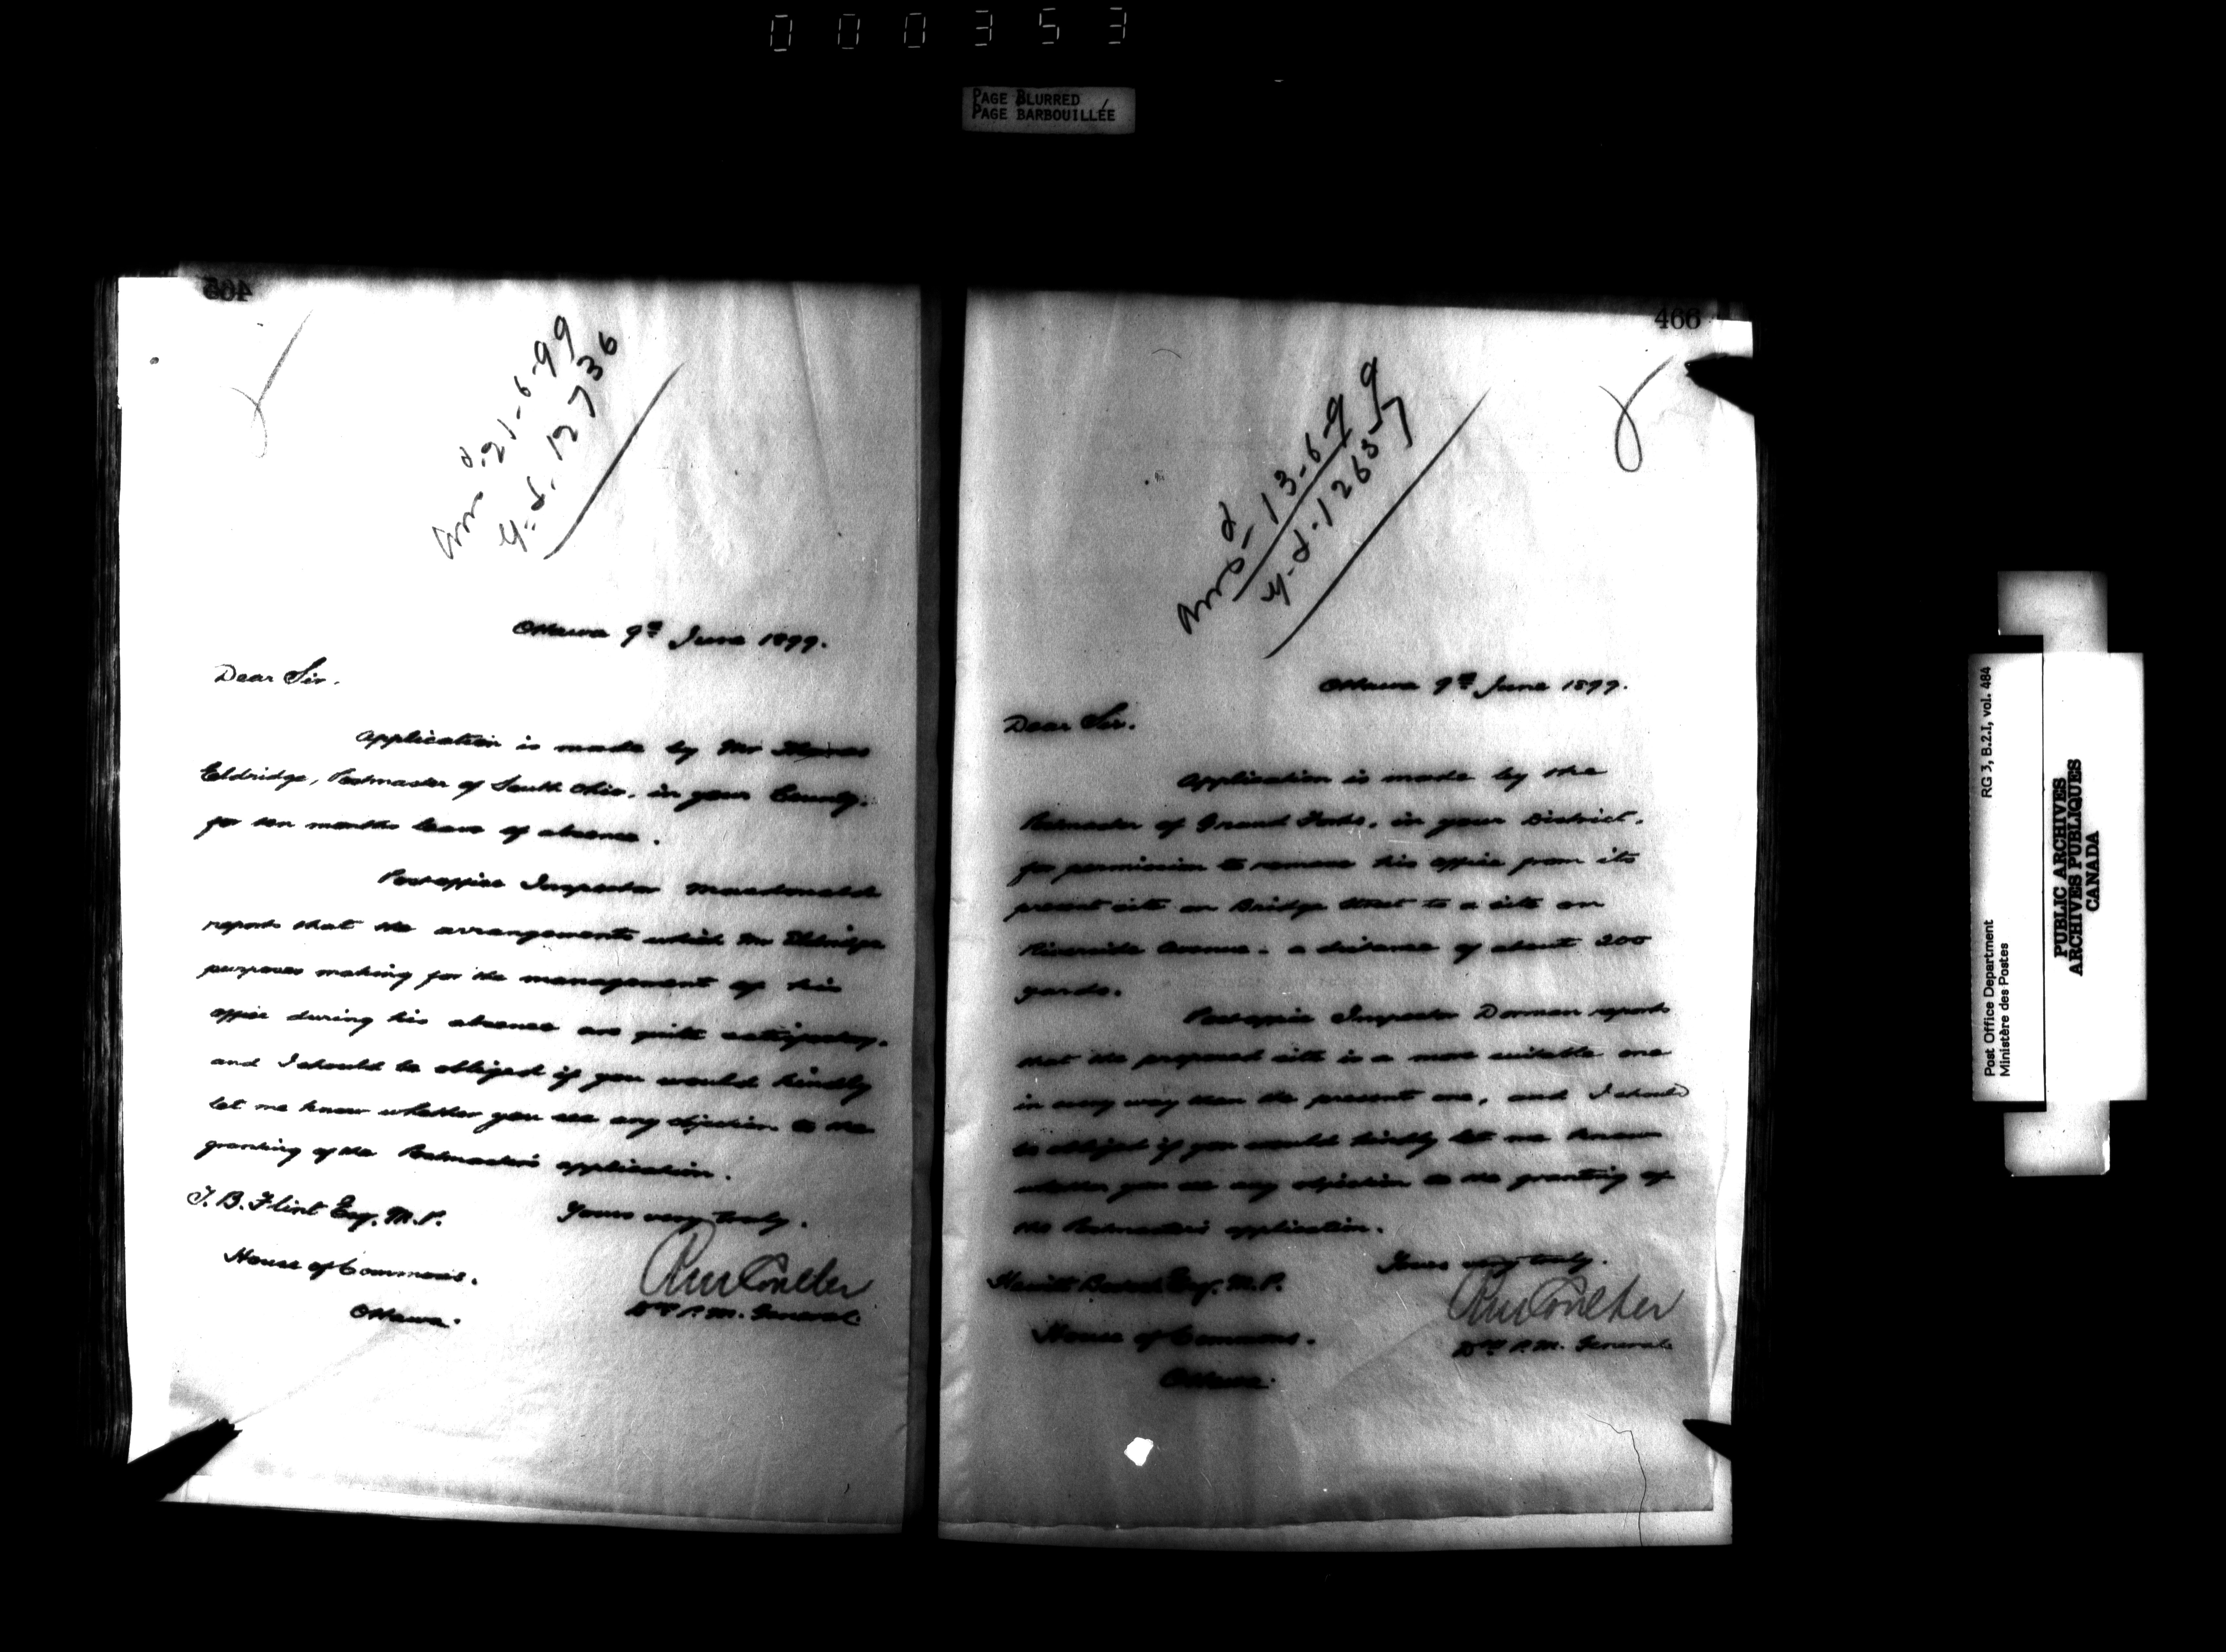 000353
PAGE BLURRED
PAGE BARBOUILLÉE
465
Ansd. 21-6-99
12736
Ottawa 9th June 1899.
Dear Sir.
Application is made by Mr
Eldridge, Postmaster of South Ohio, in your County,
for ten months leave of absence.
Postoffice Inspector Macdonald
reports that the arrangements which Mr Eldridge
purposes making for the management of his
office during his absence are quite satisfactory,
and I should be obliged if you would kindly
let me know whether you see any objection to the
granting of the Postmaster's application.
T. B. Flint Esq. M.P. Yours very truly.
House of Commons. RM Coulter
Ottawa. Dy P.M. General.
466
Ansd - 13-6-99
12637
Ottawa 9th June 1899.
Dear Sir.
Application is made by the
Postmaster of Grand Forks, in your District,
for permission to remove his office from its
present site on Bridge Street to a site on
Riverside Avenue - a distance of about 200
yards.
Postoffice Inspector Dorman reports
that the proposed site is a more suitable one
in every way than the present one, and I should
be obliged if you would kindly let me know
whether you see any objection to the granting of
the Postmaster's application.
Yours very truly.
Hewitt Bostock Esq. M.P. RM Coulter
House of Commons. Dy P.M. General
Ottawa.
Post Office Department RG 3, B.2.I, vol. 484
Ministère des Postes
PUBLIC ARCHIVES
ARCHIVES PUBLIQUES
CANADA